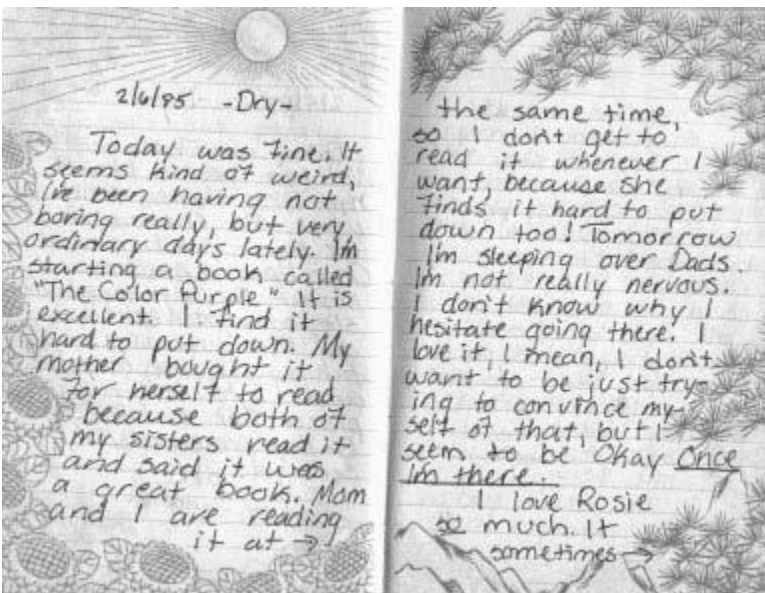 2/6/95 -Dry-
Today was fine. It
seems kind of weird,
I've been having not
boring really, but very
ordinary days lately. Im
starting a book called
"The Color Purple" It is
excellent. I find it
hard to put down. My
mother bought it
for herself to read
because both of
my sisters read it
and said it was
a great book. Mom
and I are reading
it at →
the same time,
so I don't get to
read it whenever I
want, because she
finds it hard to put
down too! Tomorrow
I'm sleeping over Dads.
Im not really nervous.
I don't know why I
hesitate going there. I
love it, I mean, I don't
want to be just try-
ing to convince my-
self of that, but I
seem to be Okay Once
Im there.
I love Rosie
so much. It
sometimes →